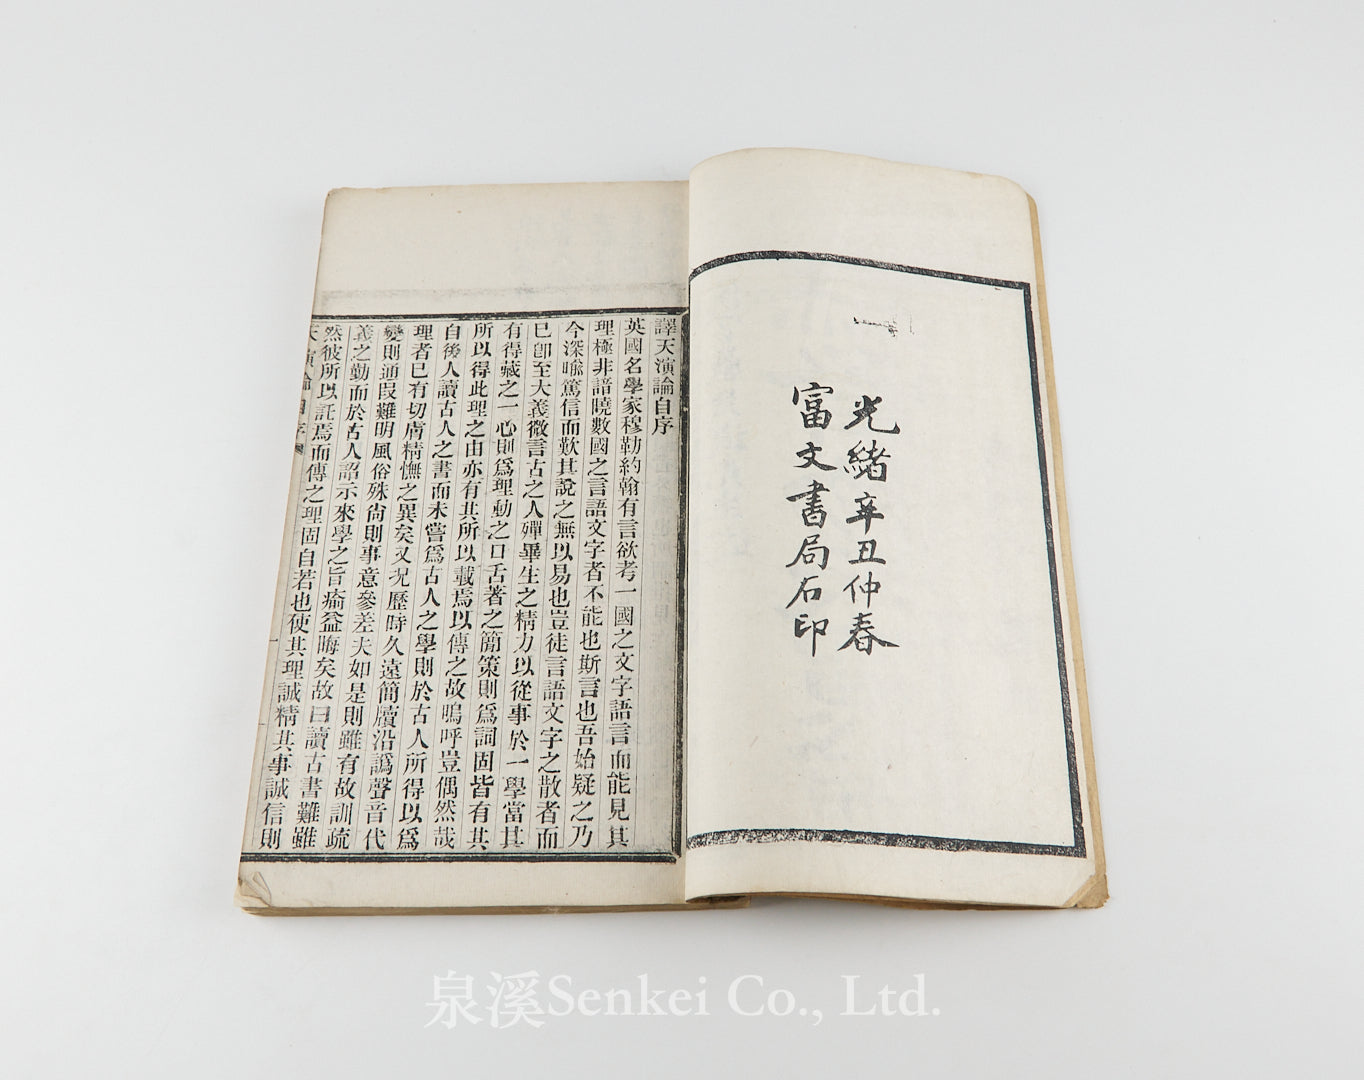 光緒辛丑仲春
富文書局石印
譯天演論自序
英國名學家穆勒約翰有言欲考一國之文字語言而能見其
理極非諳曉數國之言語文字者不能也斯言也吾始疑之乃
今深喻篤信而歎其說之無以易也豈徒言語文字之散者而
已卽至大義微言古之人殫畢生之精力以從事於一學當其
有得藏之一心則爲理動之口舌著之簡策則爲詞固皆有其
所以得此理之由亦有其所以載焉以傳之故嗚呼豈偶然哉
自後人讀古人之書而未嘗爲古人之學則於古人所得以爲
理者已有切膚精憮之異矣又况歷時久遠簡牘沿譌聲音代
變則通叚難明風俗殊尙則事意參差夫如是則雖有故訓疏
義之勤而於古人詔示來學之旨瘉益晦矣故曰讀古書難雖
然彼所以託焉而傳之理固自若也使其理誠精其事誠信則
天演論自序
一
泉溪Senkei Co., Ltd.